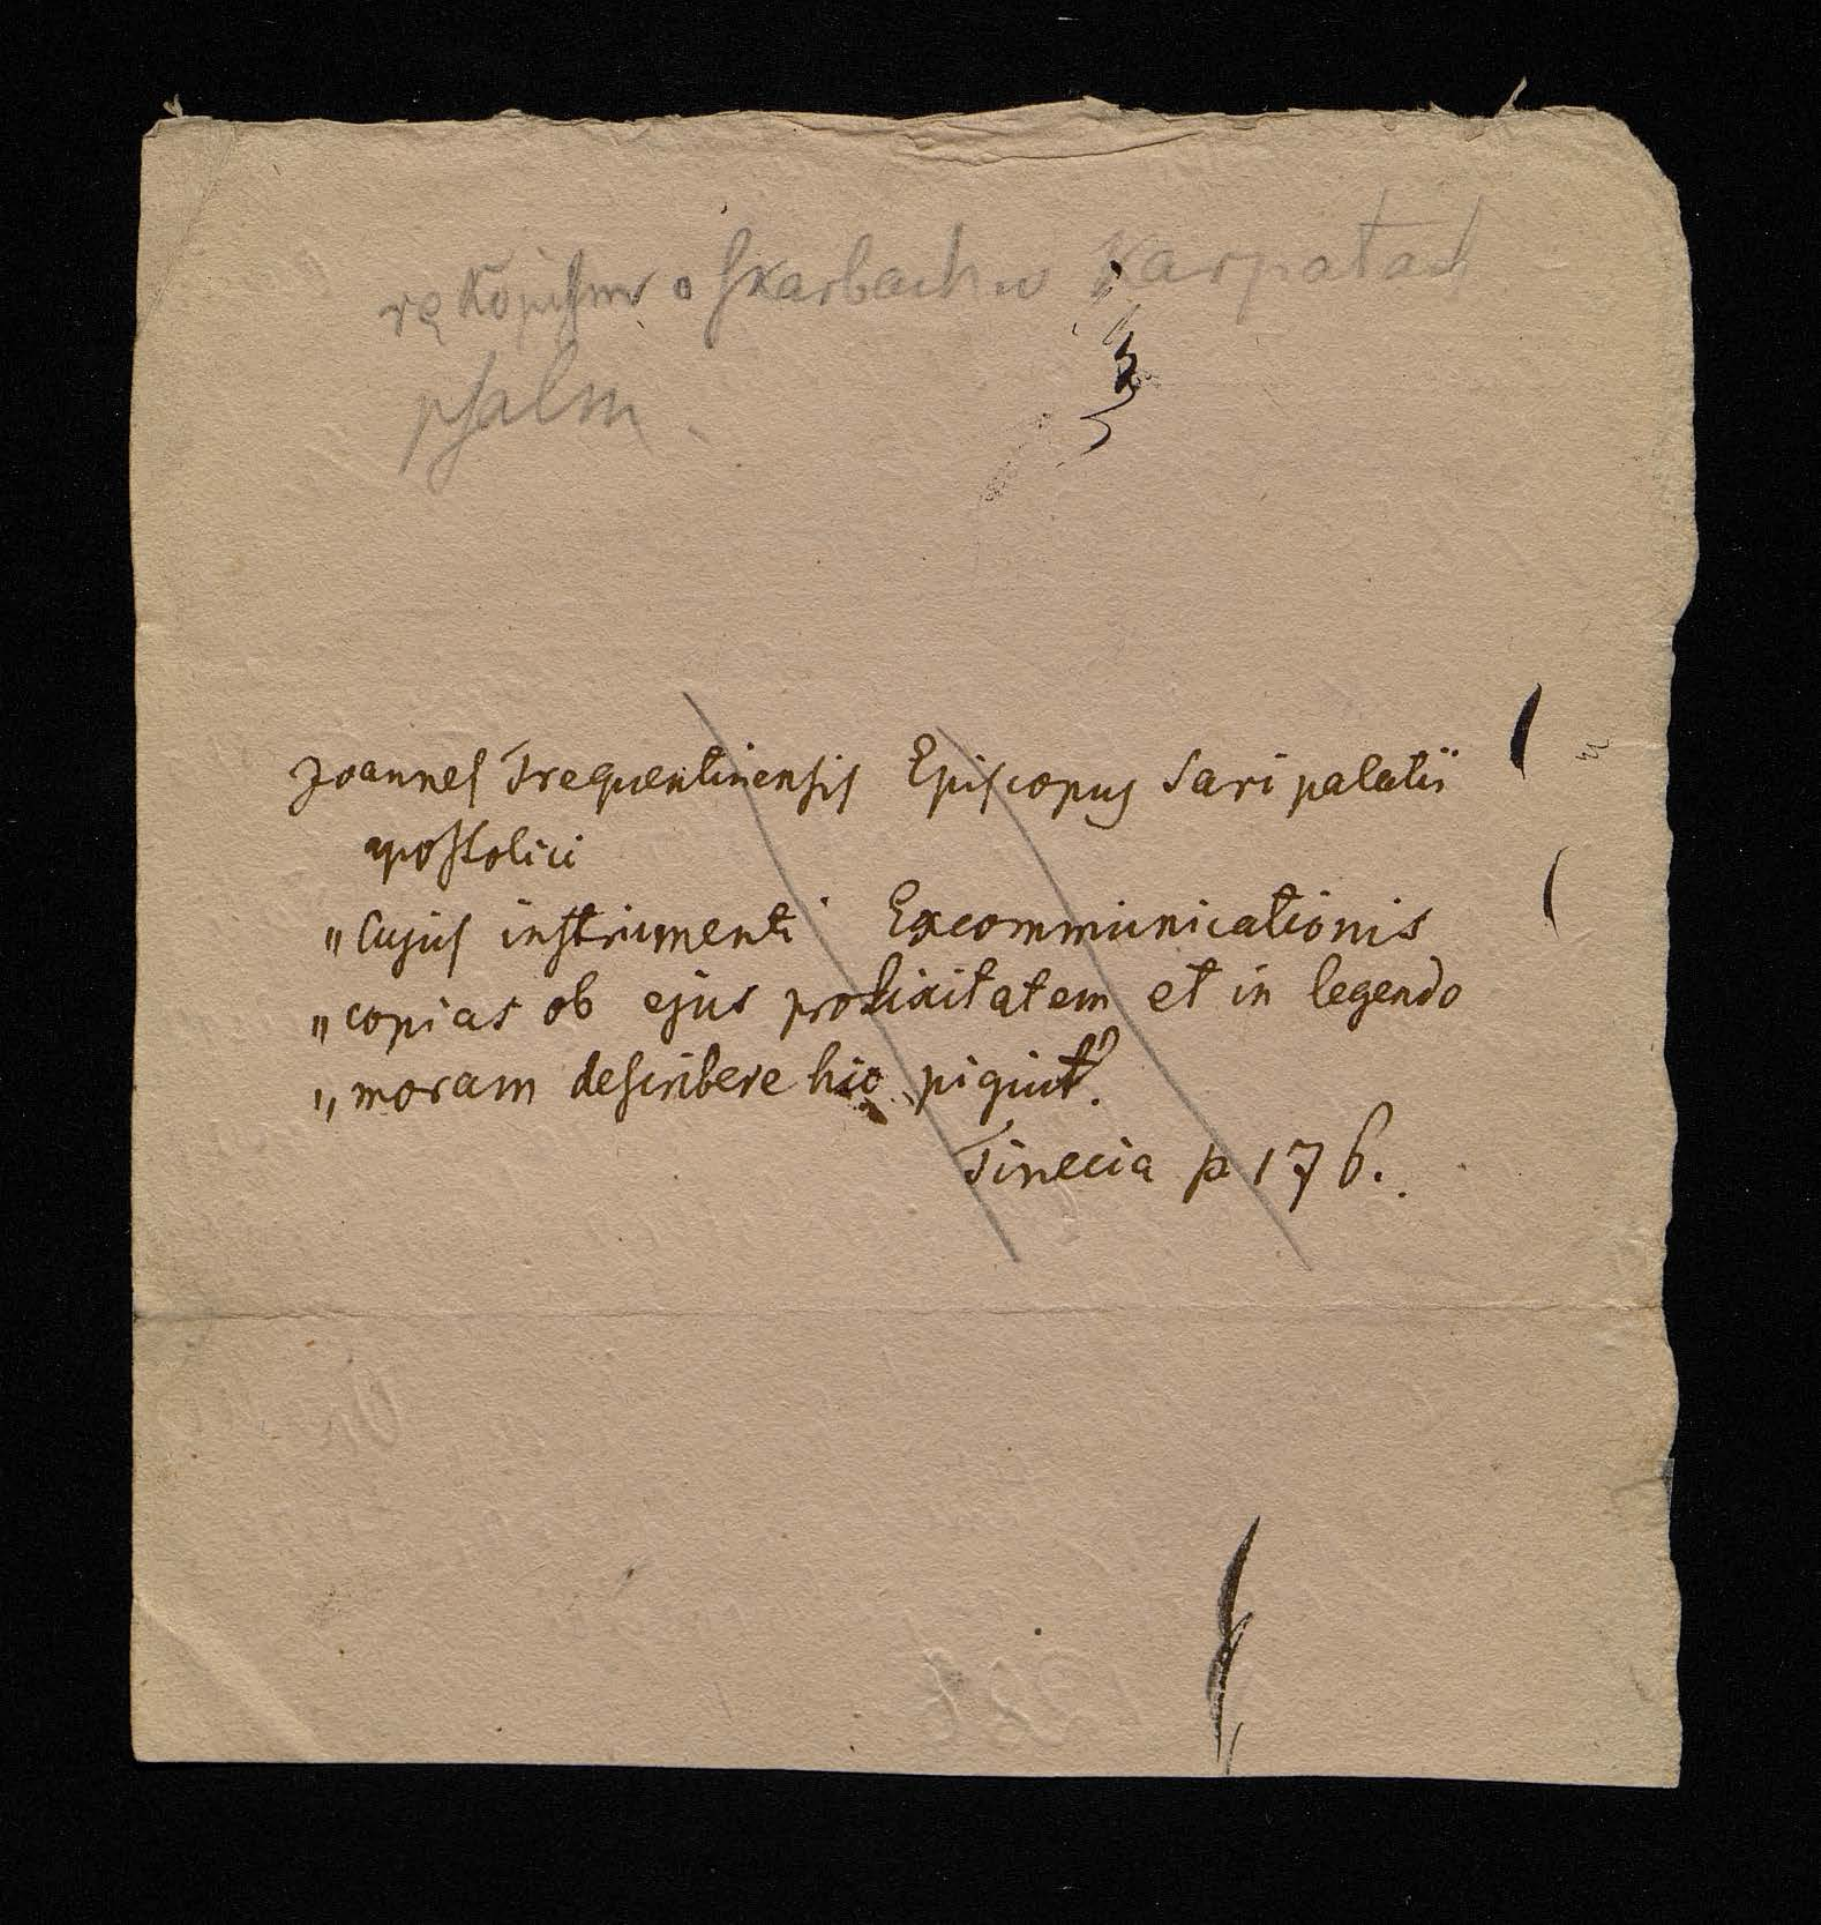 rękopism o skarbach w Karpatach
psalm
Joannes Trequentinensis Episcopus Sari palatii
apostolici
„Cujus instrumenti Excommunicationis
„copias ob ejus prolixitatem et in legendo
„moram describere hic piguit.
Tinecia p 176.